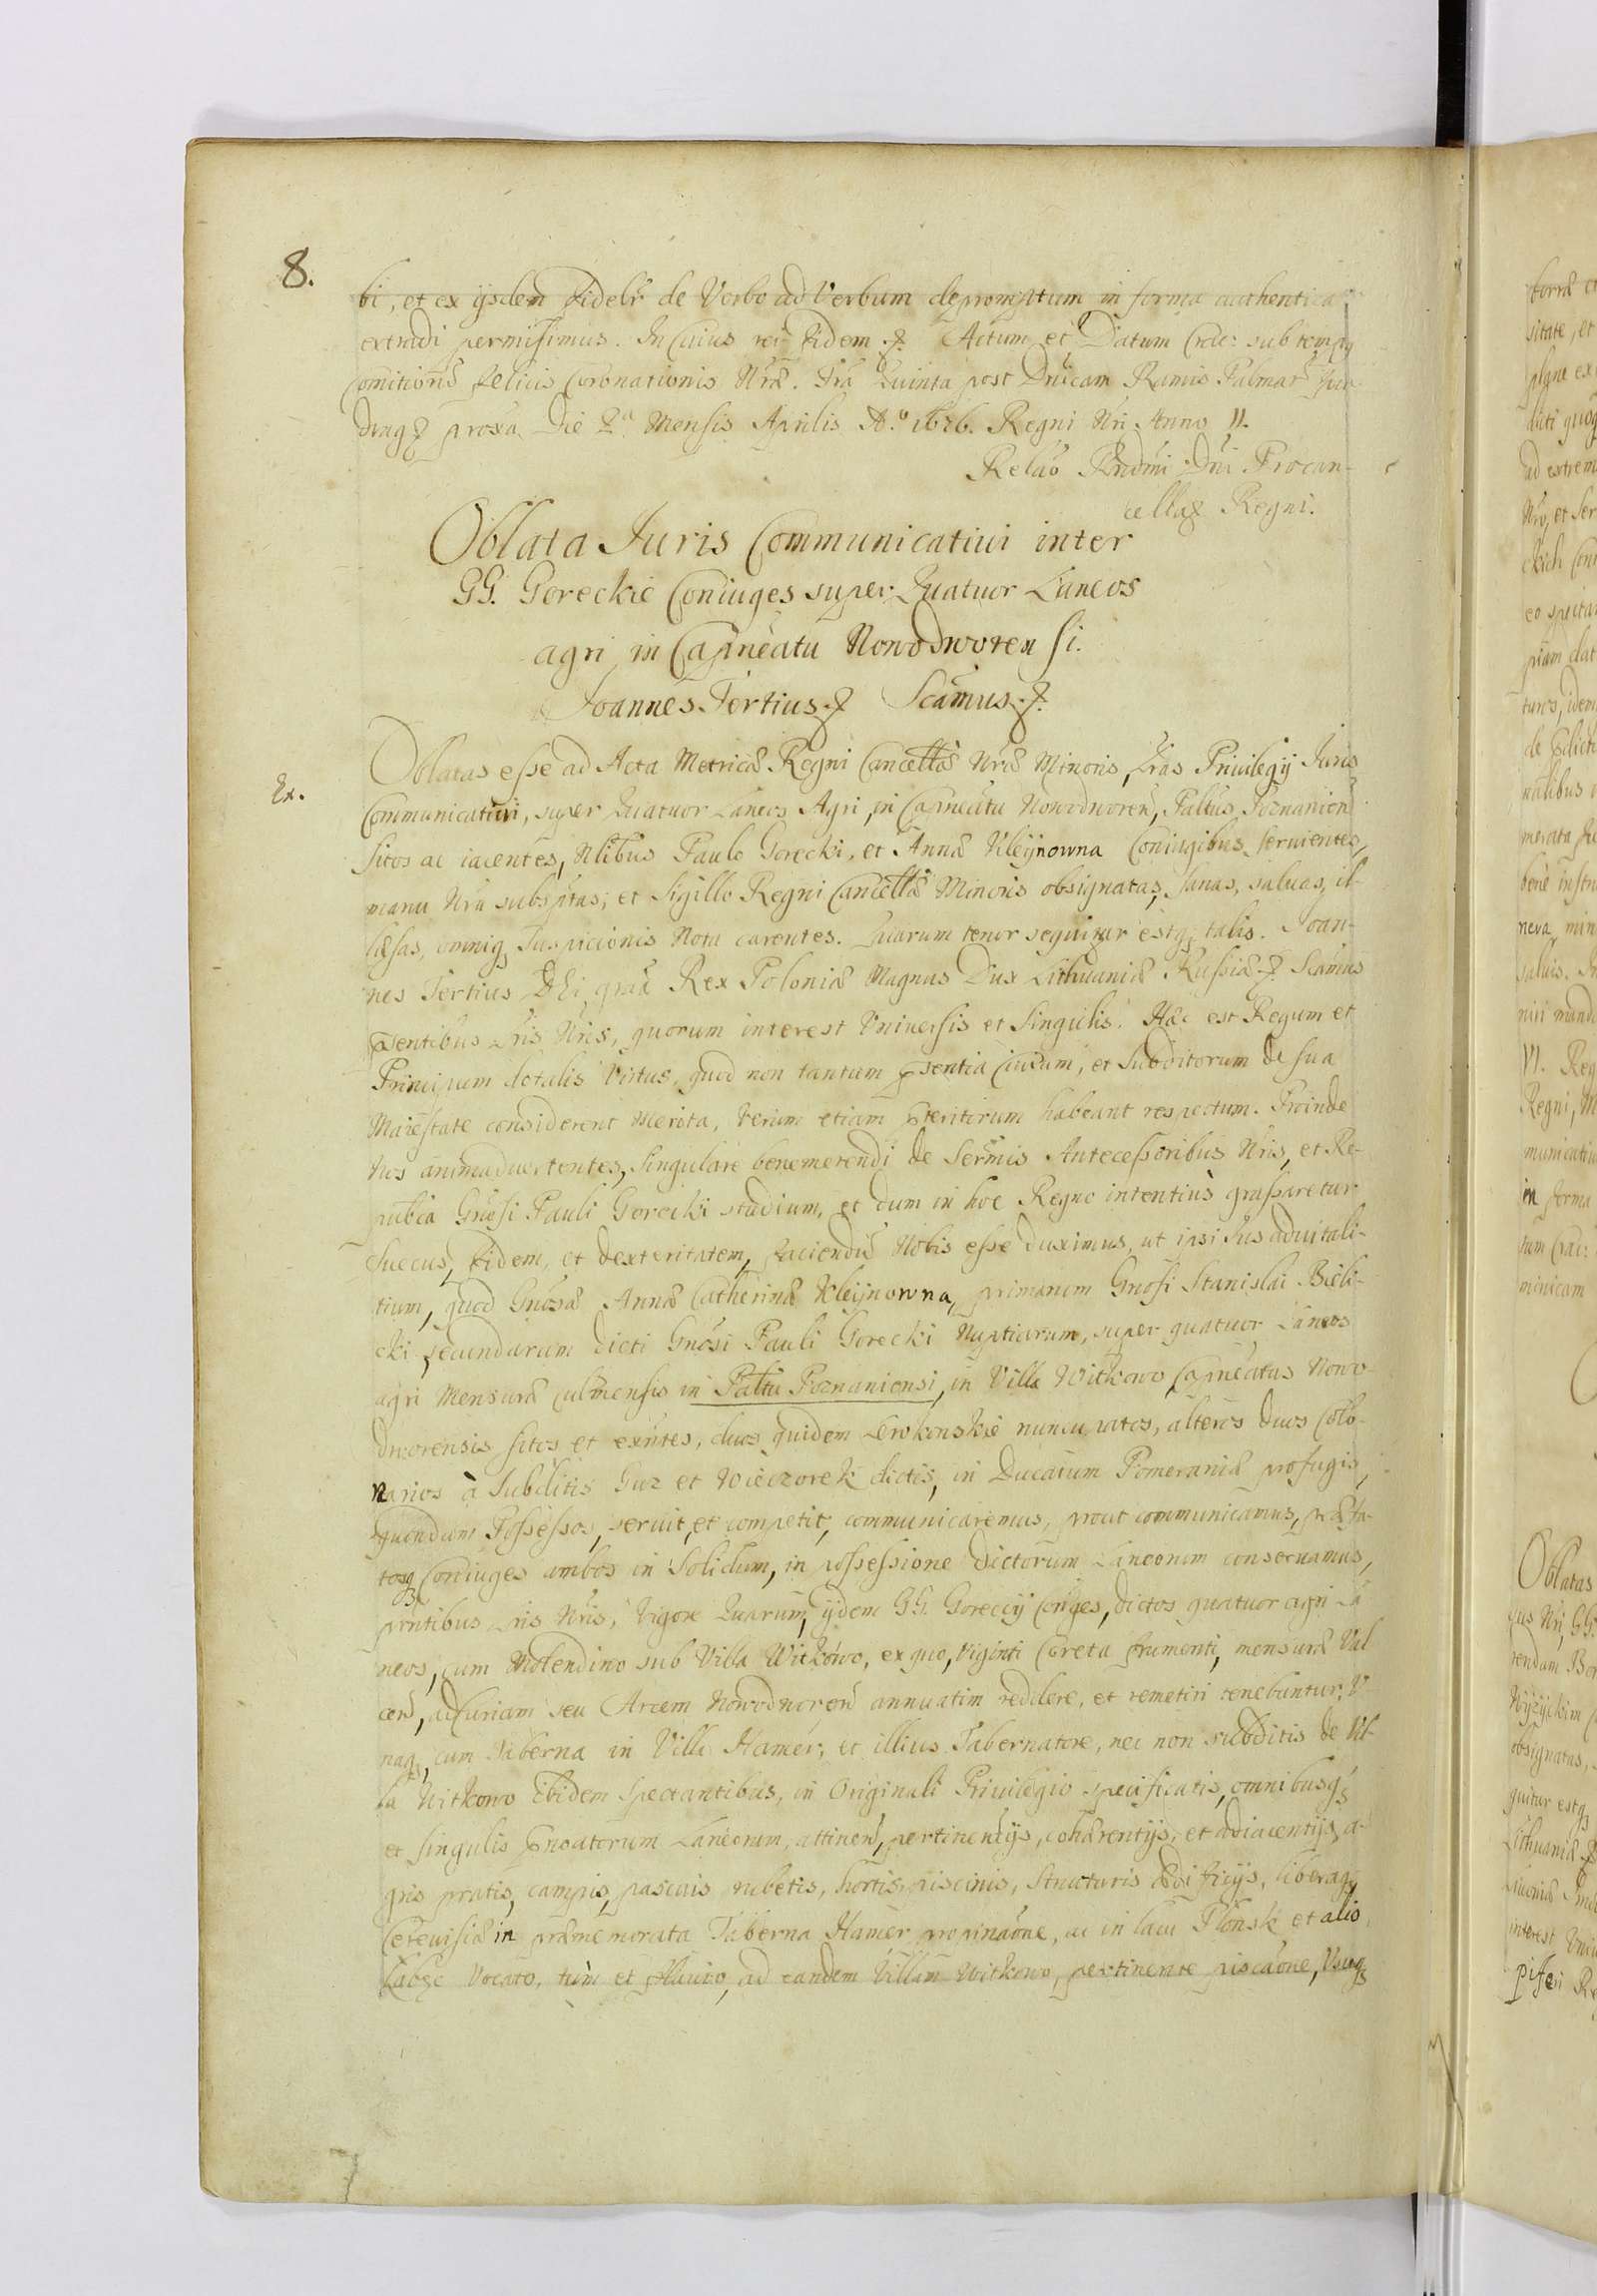 8.
bi, et ex ijsdem fidelr̃ de Verbo ad Verbum depromptum in forma authentica
extradi permisimus. In Cuius rei fidem ꝛ. Actum et Datum Crac: sub tempꝫ
Comitiorũ felicis Coronationis Nræ. Fria Quinta post Dnicam Ramis Palmarũ
dragꝛ proxa Die 2ª Mensis Aprilis Aº. 1676. Regni Nri Anno II.
Relaõ Rndmi Dni Procan-
cellaꝛ Regni.
Oblata Iuris Communicatiui inter
GG. Goreckie Coniuges super Quatuor Laneos
agri in Capneatu Nowodworensi.
Joannes Tertius ꝛ Scamus ꝛ.
Ex.
Oblatas esse ad Acta Metricæ Regni Cancellæ Nræ Minoris, Lras Priuilegij Iuris
Communicatiui, super Quatuor Laneos Agri, in Capneatu Nowodworen, Paltus Poznanien
sitos ac iacentes, Nlibus Paulo Gorecki, et Annæ Kleynowna Coniugibus seruientes,
manu Nra subsptas, et Sigillo Regni Cancellæ Minoris obsignatas, sanas, saluas, il-
læsas, omniqꝫ Suspicionis Nota carentes. Quarum tenor sequitur estqꝫ talis. Joan-
nes Tertius DEi gratia Rex Poloniæ Magnus Dux Lithuaniæ Russiæ ꝛ Scamus
pꝛsentibus Lris Nris, quorum interest Vniuersis et Singulis. Hæc est Regum et
Principum dotalis Virtus, quod non tantum pꝛsentia Ciuium, et Subditorum de sua
Maiestate considerent Merita, Verum etiam pꝛteritorum habeant respectum. Proinde
Nos animaduertentes, Singulare benemerendi de Sermis Antecessoribus Nris, et Re-
publca Gnosi Pauli Gorecki studium, et dum in hoc Regno intentius grassaretur
Suecus, fidem, et dexteritatem, faciendũ Nobis esse duximus, ut ipsi Ius aduitali-
tium, quod Gnosæ Annæ Catherinæ Kleynowna, primarum Gnosi Stanislai Bieli-
cki, secundarum dicti Gnosi Pauli Gorecki Nuptiarum, super quatuor Laneos
agri Mensuræ Culmensis in Paltu Poznaniensi, in Villa Witkowo Capneatus Nowo-
dworensis sitos et exntes, duos quidem Lewkonskie nuncupatos, alteros duos Colo-
narios à Subditis Guz et Wieczorek dictis, in Ducatum Pomeraniæ profugis,
quondam Possessos, seruit, et competit, communicaremus, prout communicamus, præfa-
tosqꝫ Coniuges ambos in Solidum, in possessione dictorum Laneorum conseruamus,
pꝛntibus Lris Nris, Vigore Quarum, ijdem GG. Goreccij Coniges, dictos quatuor agri La
neos, cum Molendino sub Villa Witkowo, ex quo, Viginti Coreta frumenti, mensuræ Val
cen, ad Curiam seu Arcem Nowodworen annuatim reddere, et remetiri tenebuntur, V-
naqꝫ, cum Taberna in Villa Hamer, et illius Tabernatore, nec non subditis de Vil-
la Witkowo Ibidem Spectantibus, in Originali Priuilegio specificatis, omnibusqꝫ
et singulis pꝛnotatorum Laneorum, attinen, pertinentijs, cohærentijs, et adiacentijs, a-
gris pratis, campis, pascuis rubetis, hortis, piscinis, Structuris ædificijs, liberaqꝫ
Cereuisiæ in præmemorata Taberna Hamer propinaõne, ac in lacu Płońsk et alio,
Łabze Vocato, tùm et fluuio, ad eandem Villam Witkowo, pertinente piscaõne,